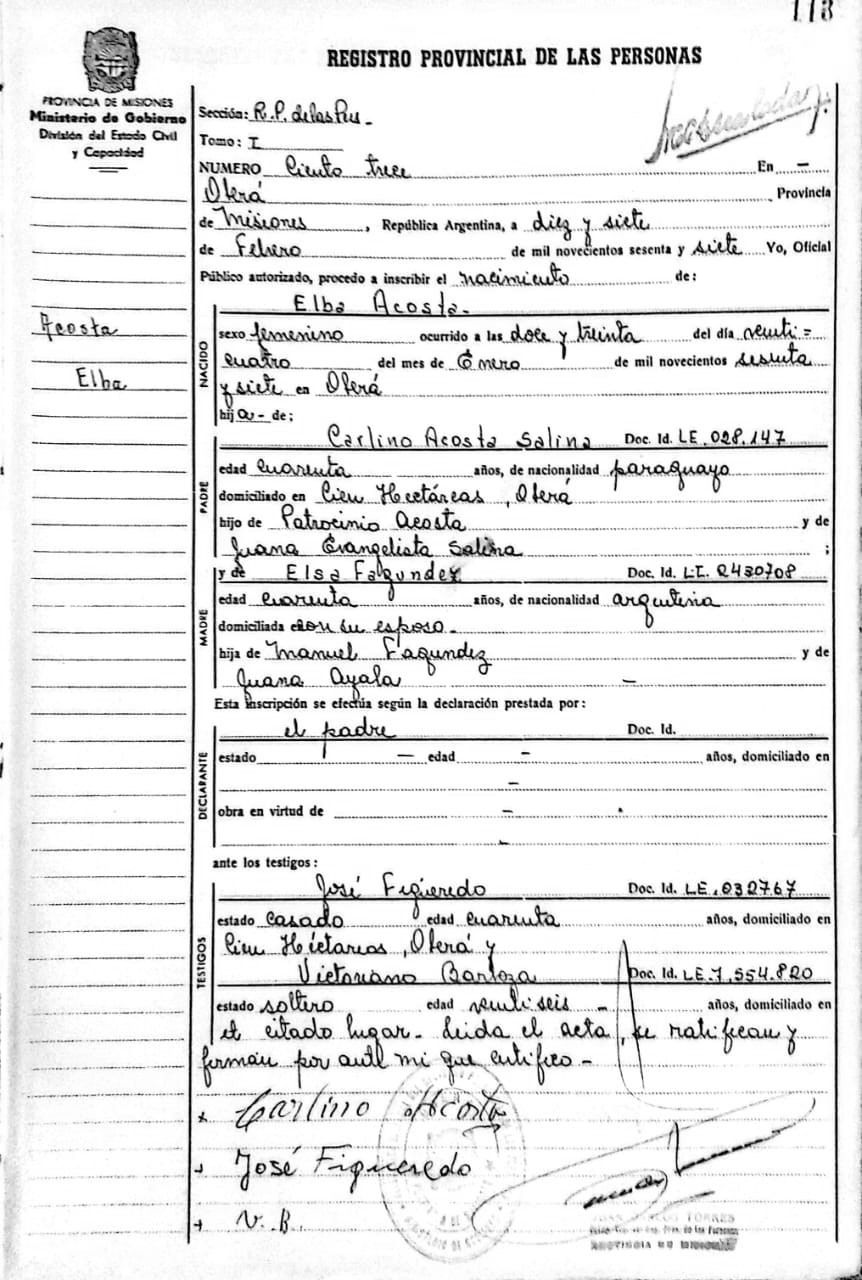 113
REGISTRO PROVINCIAL DE LAS PERSONAS
PROVINCIA DE MISIONES
Ministerio de Gobierno
División del Estado Civil
y Capacidad
Sección: R.P. de las Per -
Tomo: I
NUMERO Ciento trece En -
Oberá Provincia
de Misiones, República Argentina, a diez y siete
de Febrero de mil novecientos sesenta y siete Yo, Oficial
Público autorizado, procedo a inscribir el nacimiento de:
Acosta
Elba
NACIDO
Elba Acosta.
sexo femenino ocurrido a las doce y treinta del día veinti=
cuatro del mes de Enero de mil novecientos sesenta
y siete en Oberá
hija - de;
PADRE
Carlino Acosta Salina Doc. Id. LE.028.147
edad cuarenta años, de nacionalidad paraguayo
domiciliado en Cien Hectáreas, Oberá
hijo de Patrocinio Acosta y de
Juana Evangelista Salina ;
MADRE
y de Elsa Fagundez Doc. Id. LI. 2430708
edad cuarenta años, de nacionalidad argentina
domiciliada con su esposo.
hija de Manuel Fagundez y de
Juana Ayala -
Esta inscripción se efectúa según la declaración prestada por:
DECLARANTE
el padre Doc. Id.
estado - edad - años, domiciliado en
-
obra en virtud de -
ante los testigos:
TESTIGOS
José Figueredo Doc. Id. LE.032767
estado casado edad cuarenta años, domiciliado en
Cien Hectareas, Oberá y
Victoriano Barloza Doc. Id. LE.7.554.820
estado soltero edad veintiseis - años, domiciliado en
el citado lugar. Leida el acta, se ratifican y
firman por ante mi que certifico -
Carlino Acosta
José Figueredo
V. B.
TORRES